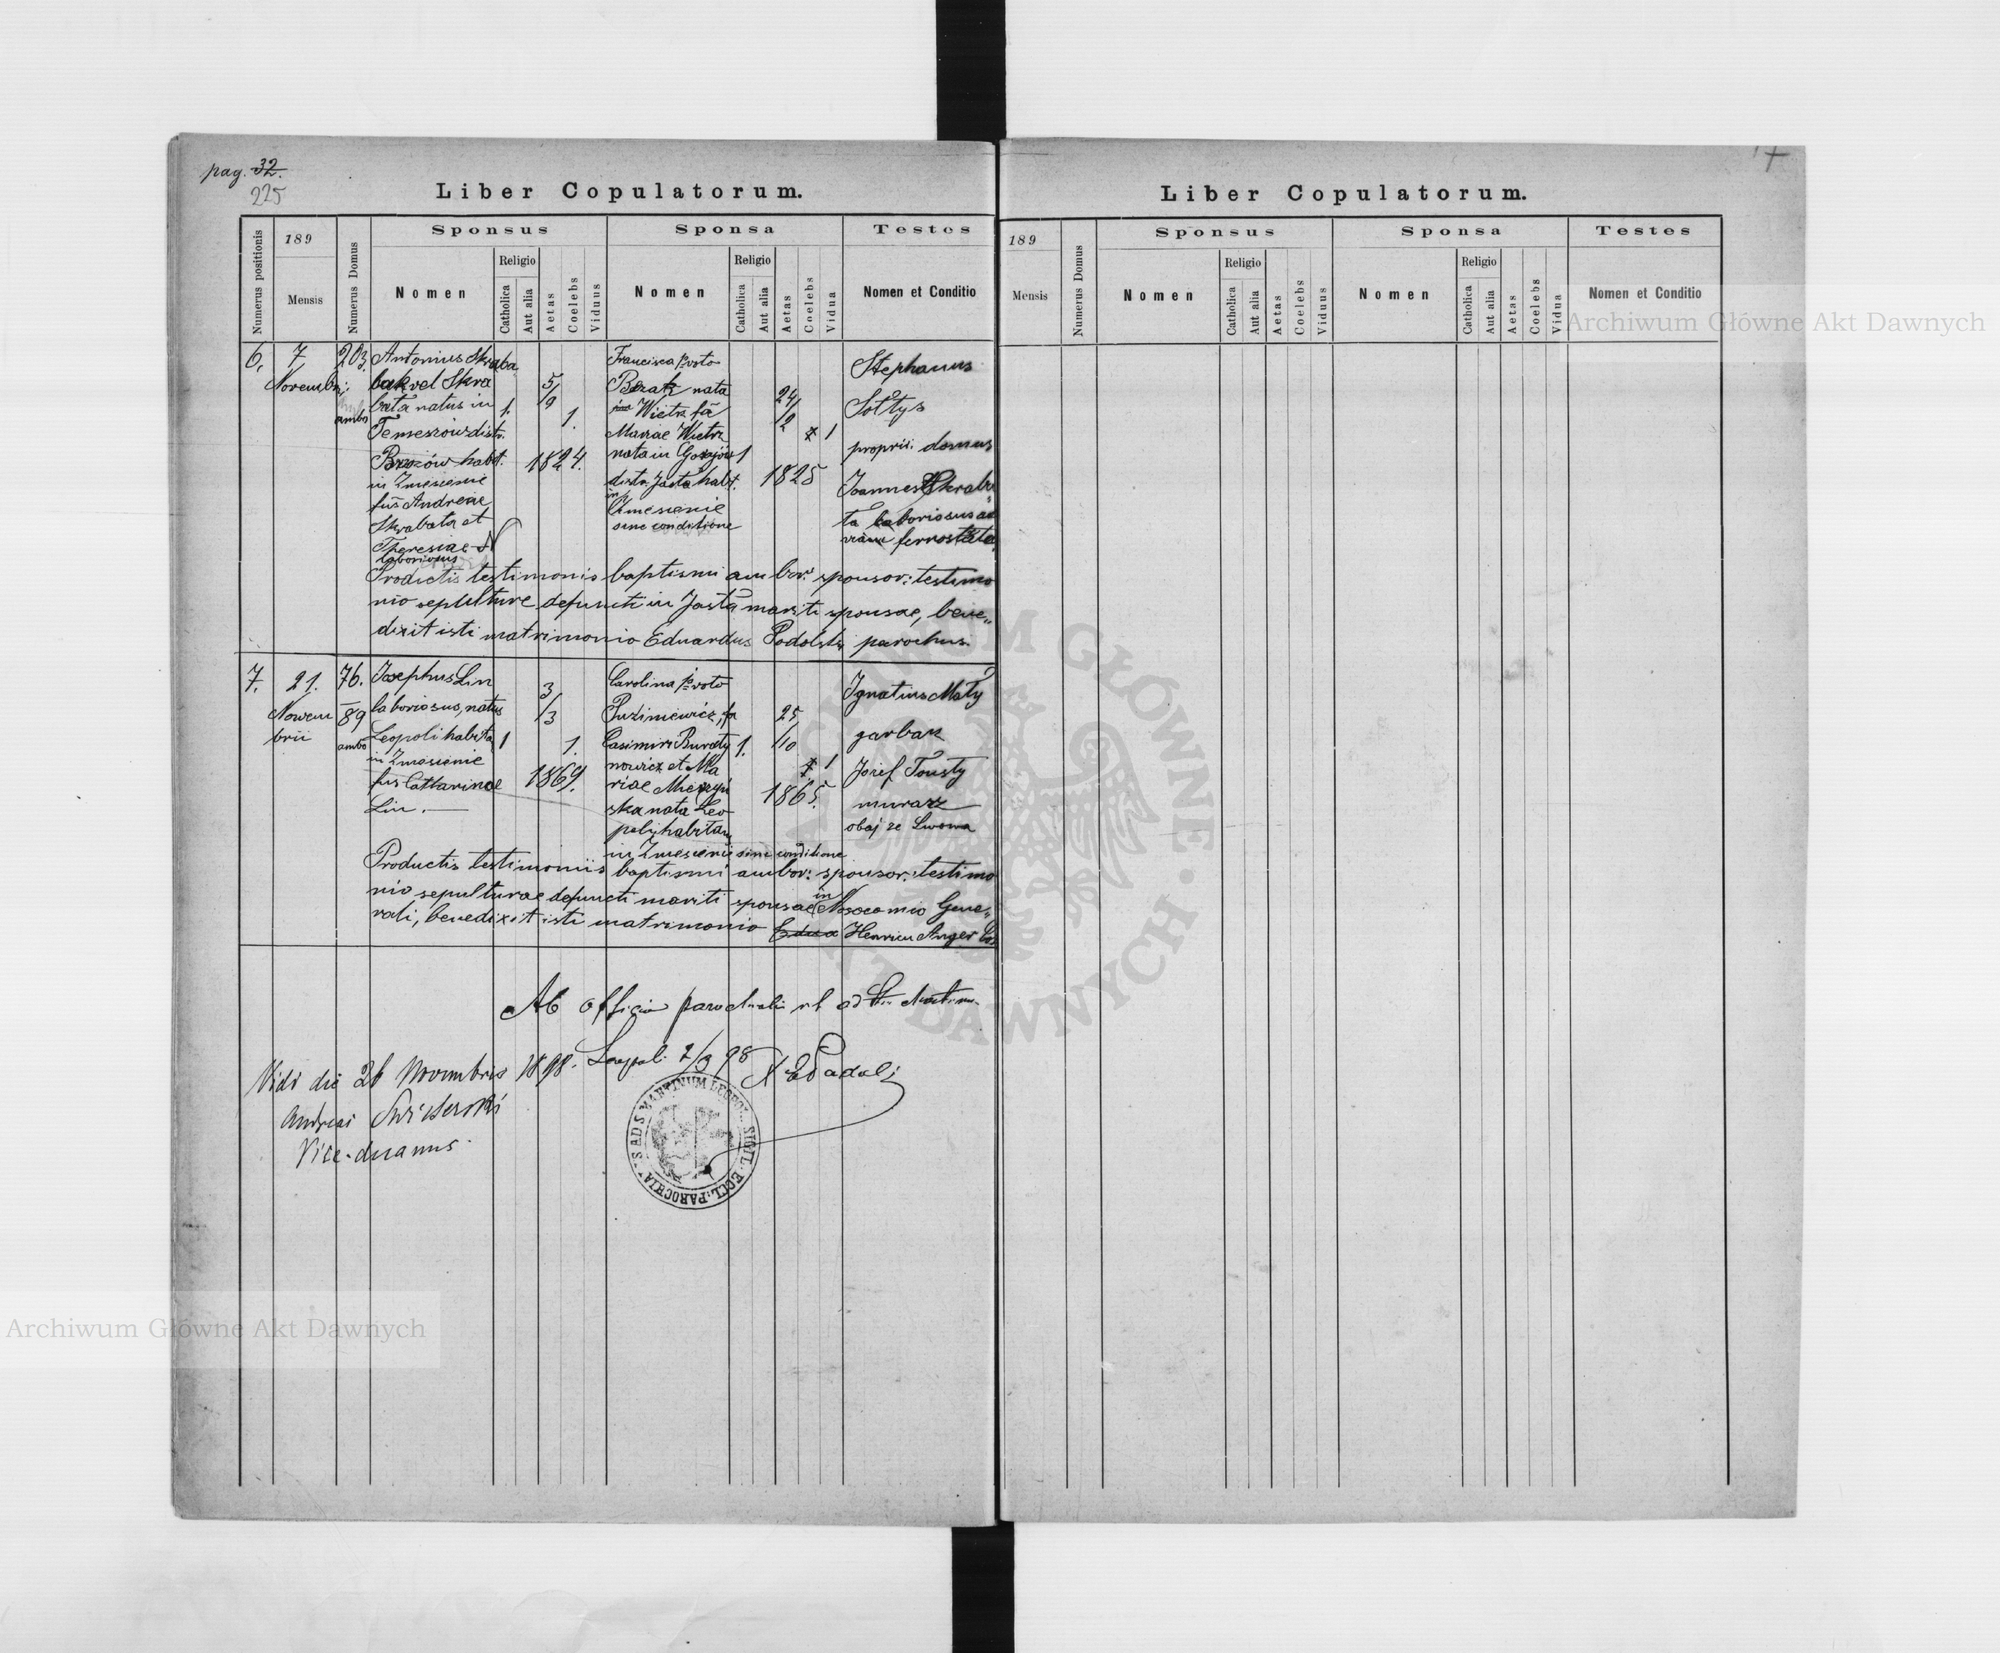 pag. 32.
225
Liber Copulatorum.
Numerus positionis
189
Mensis
Numerus Domus
Sponsus
Nomen
Religio
Catholica
Aut alia
Aetas
Coelebs
Viduus
Sponsa
Nomen
Religio
Catholica
Aut alia
Aetas
Coelebs
Vidua
Testes
Nomen et Conditio
6.
7
Novembri:
203.
ambo
Antonius Skraba
bak vel Skra
bata natus in
Temeszów distr.
Brzozów habit.
in Zniesienie
fus Andreae
Skrabata et
Theresiae N
laboriosus
1.
5/9
1824.
1.
Francisca pvoto
nata
Wietr fa
Mariae Wietr
nata in
distr. Jasła habt.
in
Zniesienie
sine conditione
1
24/2
1825
1
Stephanus
Sołtys
proprii. domus
Joannes Skraba
ta laboriosus ad
viam ferrostata
Productis testimonio baptismi ambor: sponsor: testimo
nio sepulture defuncti in Jasła mariti sponsae, bene„
dixit isti matrimonio Eduardus Podolski parochus.
7.
21.
Novem
brii
76.
89
ambo
Josephus Lin
laboriosus, natus
Leopoli habita
in Zniesienie
fus Catharinae
Lin.
1
3/3
1869.
1.
Carolina pvoto
Puziniewicz, fa
Casimiri Buraty
nowicz et Ma
riae
ska nata Leo
poli, habitans
in Zniesienie sine conditione
1.
25/10
1865.
1
Ignatius Mały
garbarz
Józef Tousty
murarz
obaj ze Lwowa
Productis testimoniis baptismi ambor: sponsor: testimo
nio sepulturae defuncti mariti sponsae in Nosocomio Gene„
rali, benedixit isti matrimonio Edua Henricu Anger
Ab officio parochiali r. l. ad St. Martinu
Leopoli 2/3 98
Vidi die 26 Novembris 1898.
Andreas
Vice-decanus
S AD S. MARTINUM LEOPOL. SIGIL. ECCL. PAROCHIA
Liber Copulatorum.
189
Mensis
Numerus Domus
Sponsus
Nomen
Religio
Catholica
Aut alia
Aetas
Coelebs
Viduus
Sponsa
Nomen
Religio
Catholica
Aut alia
Aetas
Coelebs
Vidua
Testes
Nomen et Conditio
Archiwum Główne Akt Dawnych
Archiwum Główne Akt Dawnych
ARCHIWUM GŁÓWNE · AKT DAWNYCH ·